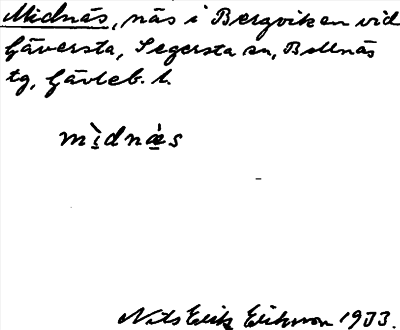 Midnäs, näs i Bergviken vid
Gäversta, Segersta sn, Bollnäs
tg, Gävleb. l.
mìdnás
Nils Erik Erikson 1933.